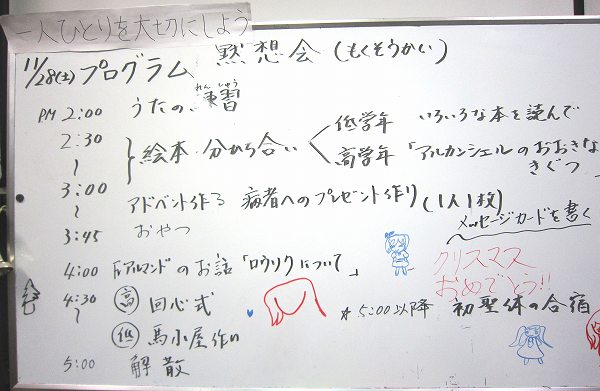 一人ひとりを大切にしよう
11/28(土) プログラム 黙想会 (もくそうかい)
PM 2:00 うたの練習
れんしゅう
2:30 絵本 分かち合い
低学年 いろいろな本を読んで
高学年 「アルカンシェルのおおきなきぐつ」
〜
3:00 アドベント作る 病者へのプレゼント作り (1人1枚)
メッセージカードを書く
〜
3:45 おやつ
4:00 Fr.アルマンドのお話「ロウソクについて」
クリスマス
おめでとう!!
4:30 高 回心式
〜
低 馬小屋作り
5:00 解散
* 5:00以降 初聖体の合宿